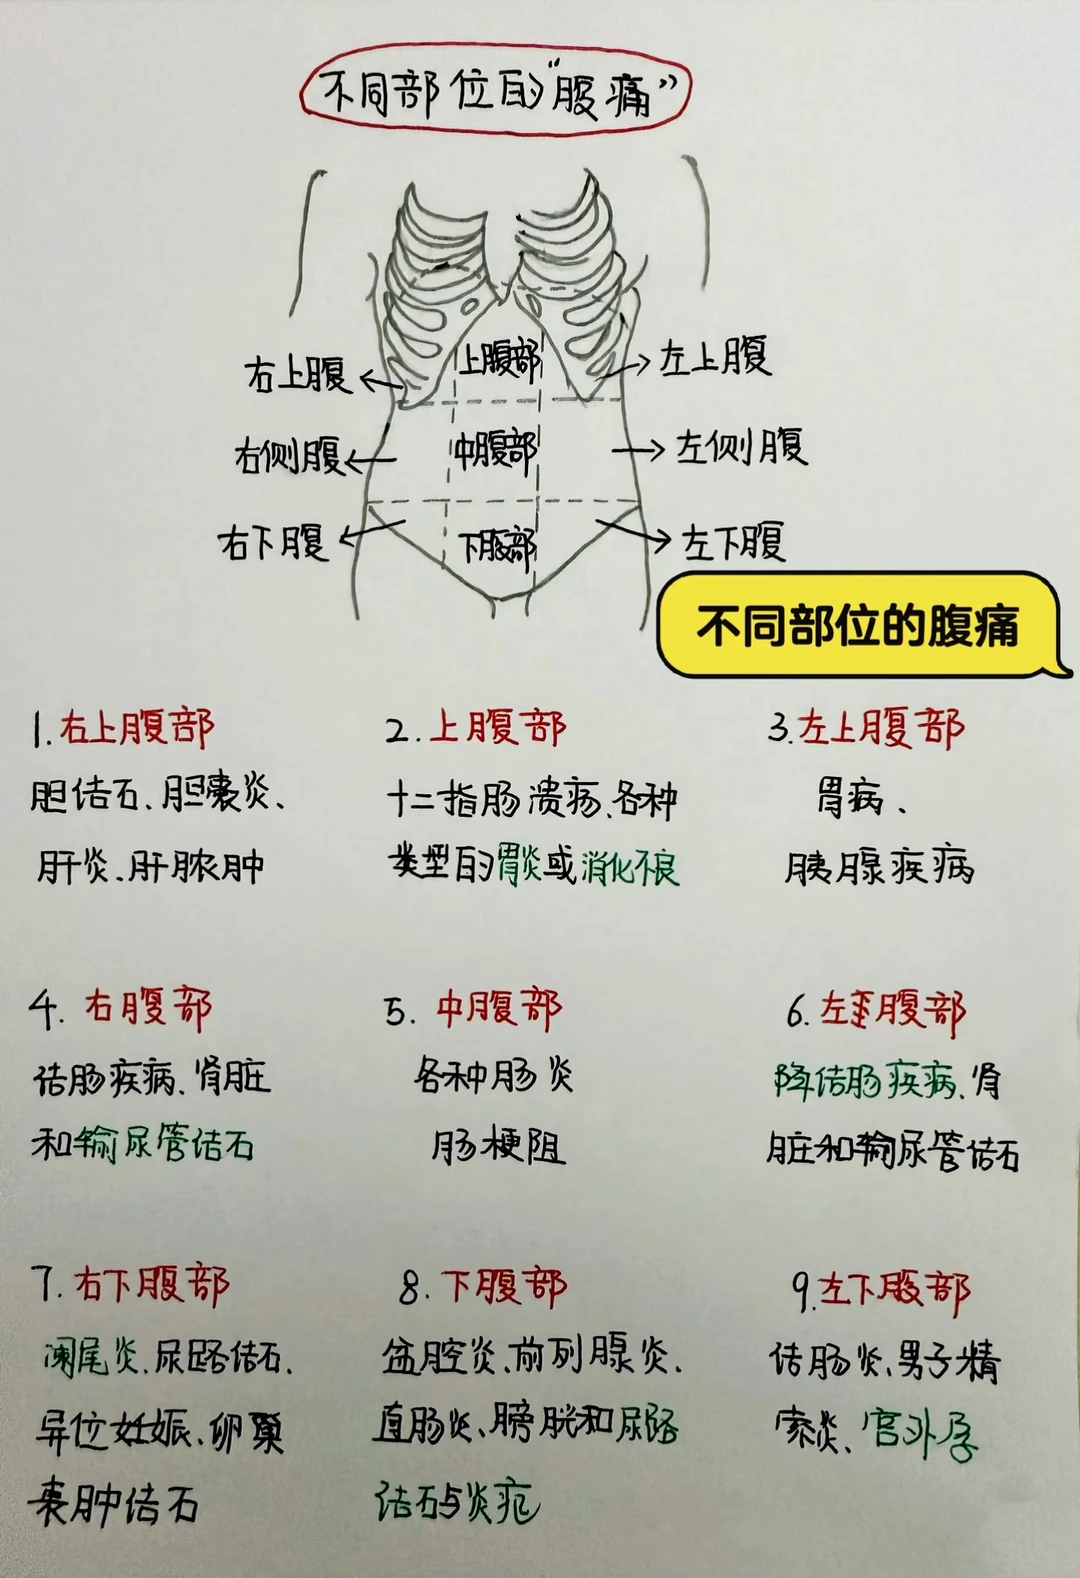 不同部位的“腹痛”
右上腹
上腹部
左上腹
右侧腹
中腹部
左侧腹
右下腹
下腹部
左下腹
不同部位的腹痛
1.右上腹部
胆结石、胆囊炎、
肝炎、肝脓肿
2.上腹部
十二指肠溃疡、各种
类型的胃炎或消化不良
3.左上腹部
胃病、
胰腺疾病
4.右腹部
结肠疾病、肾脏
和输尿管结石
5.中腹部
各种肠炎
肠梗阻
6.左腹部
降结肠疾病、肾
脏和输尿管结石
7.右下腹部
阑尾炎、尿路结石、
异位妊娠、卵巢
囊肿结石
8.下腹部
盆腔炎、前列腺炎、
直肠炎、膀胱和尿路
结石与炎症
9.左下腹部
结肠炎、男子精
索炎、宫外孕